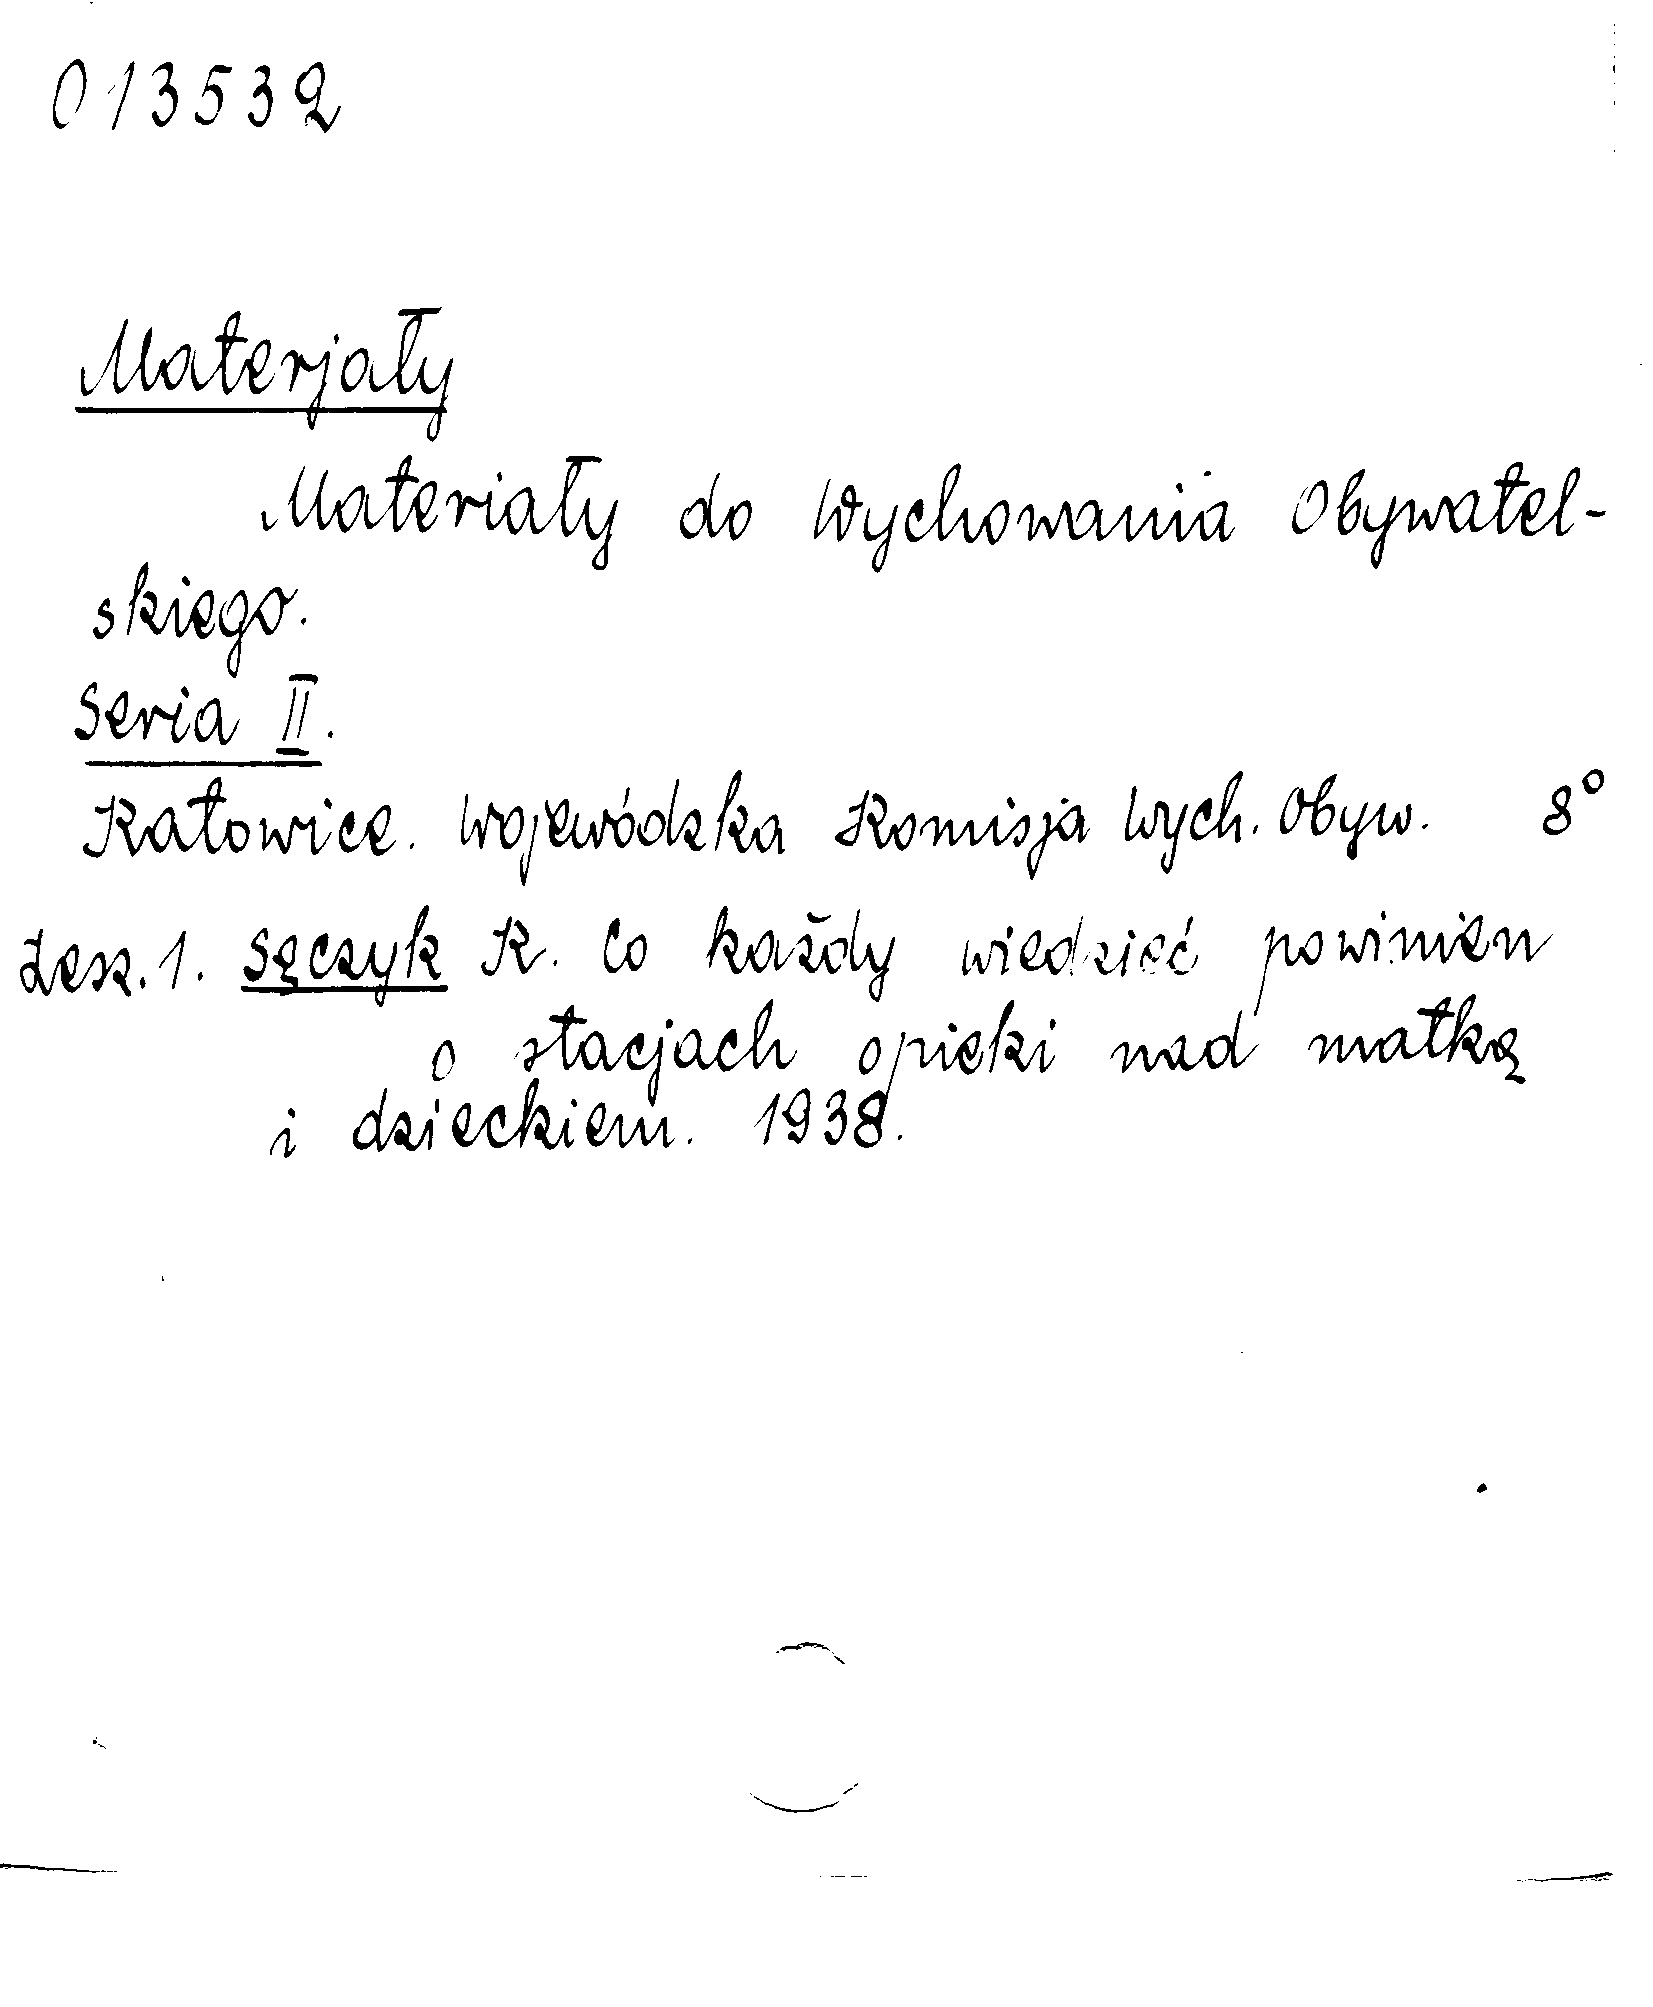 013532
Materjały
Materiały do Wychowania Obywatel-
skiego.
Seria II.
Katowice. Wojewódzka Komisja Wych. Obyw. 8°
Zesz. 1. Sęczyk K. Co każdy wiedzieć powinien
o stacjach opieki nad matką
i dzieckiem. 1938.